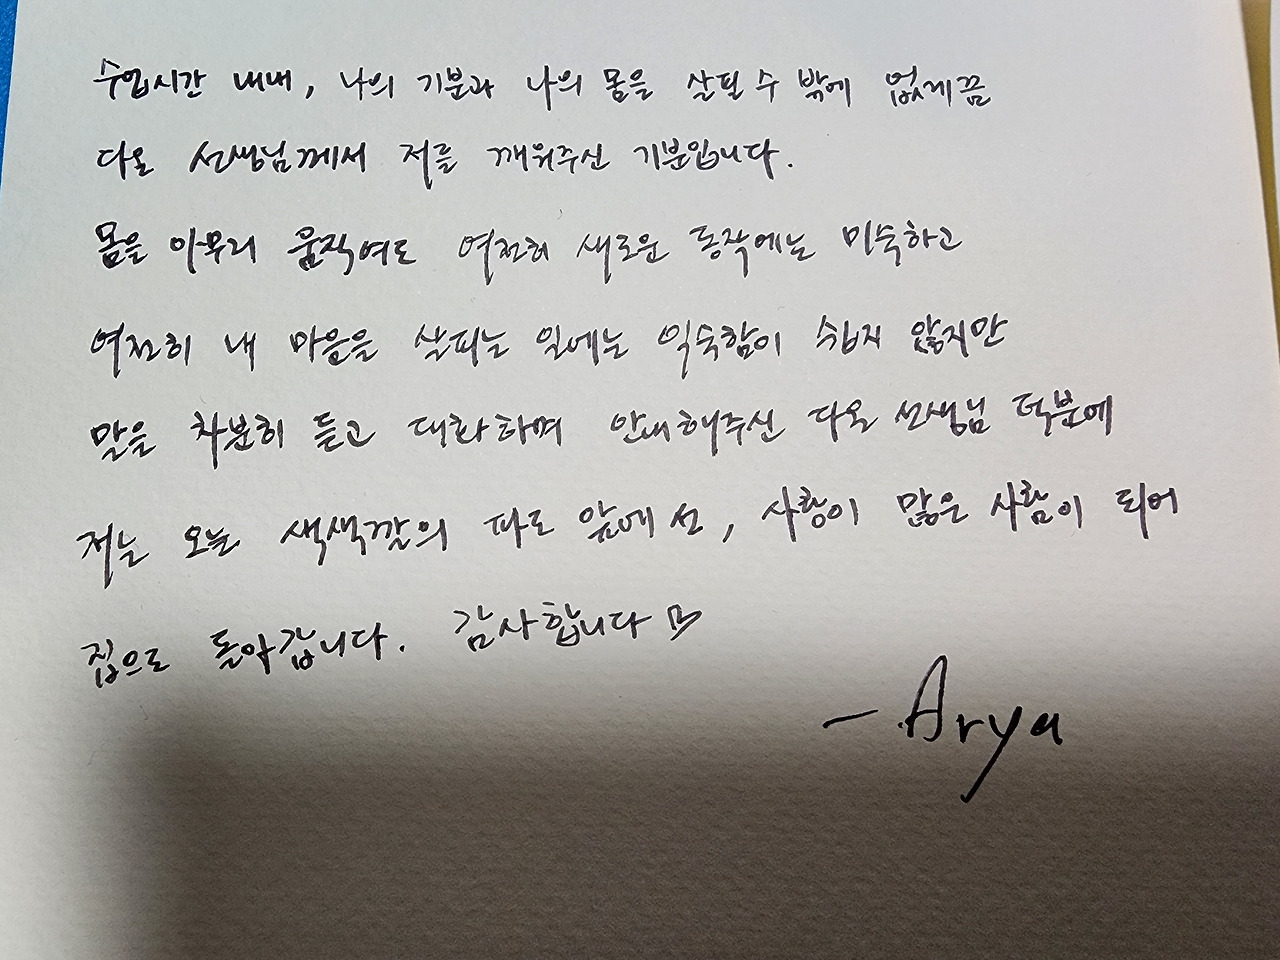 수업시간 내내, 나의 기분과 나의 몸을 살필 수 밖에 없게끔
다온 선생님께서 저를 깨워주신 기분입니다.
몸을 아무리 움직여도 여전히 새로운 동작에는 미숙하고
여전히 내 마음을 살피는 일에는 익숙함이 쉽지 않지만
말을 차분히 듣고 대화하며 안내해주신 다온 선생님 덕분에
저는 오늘 색색깔의 파도 앞에 선, 사랑이 많은 사람이 되어
집으로 돌아갑니다. 감사합니다 ♡
- Arya